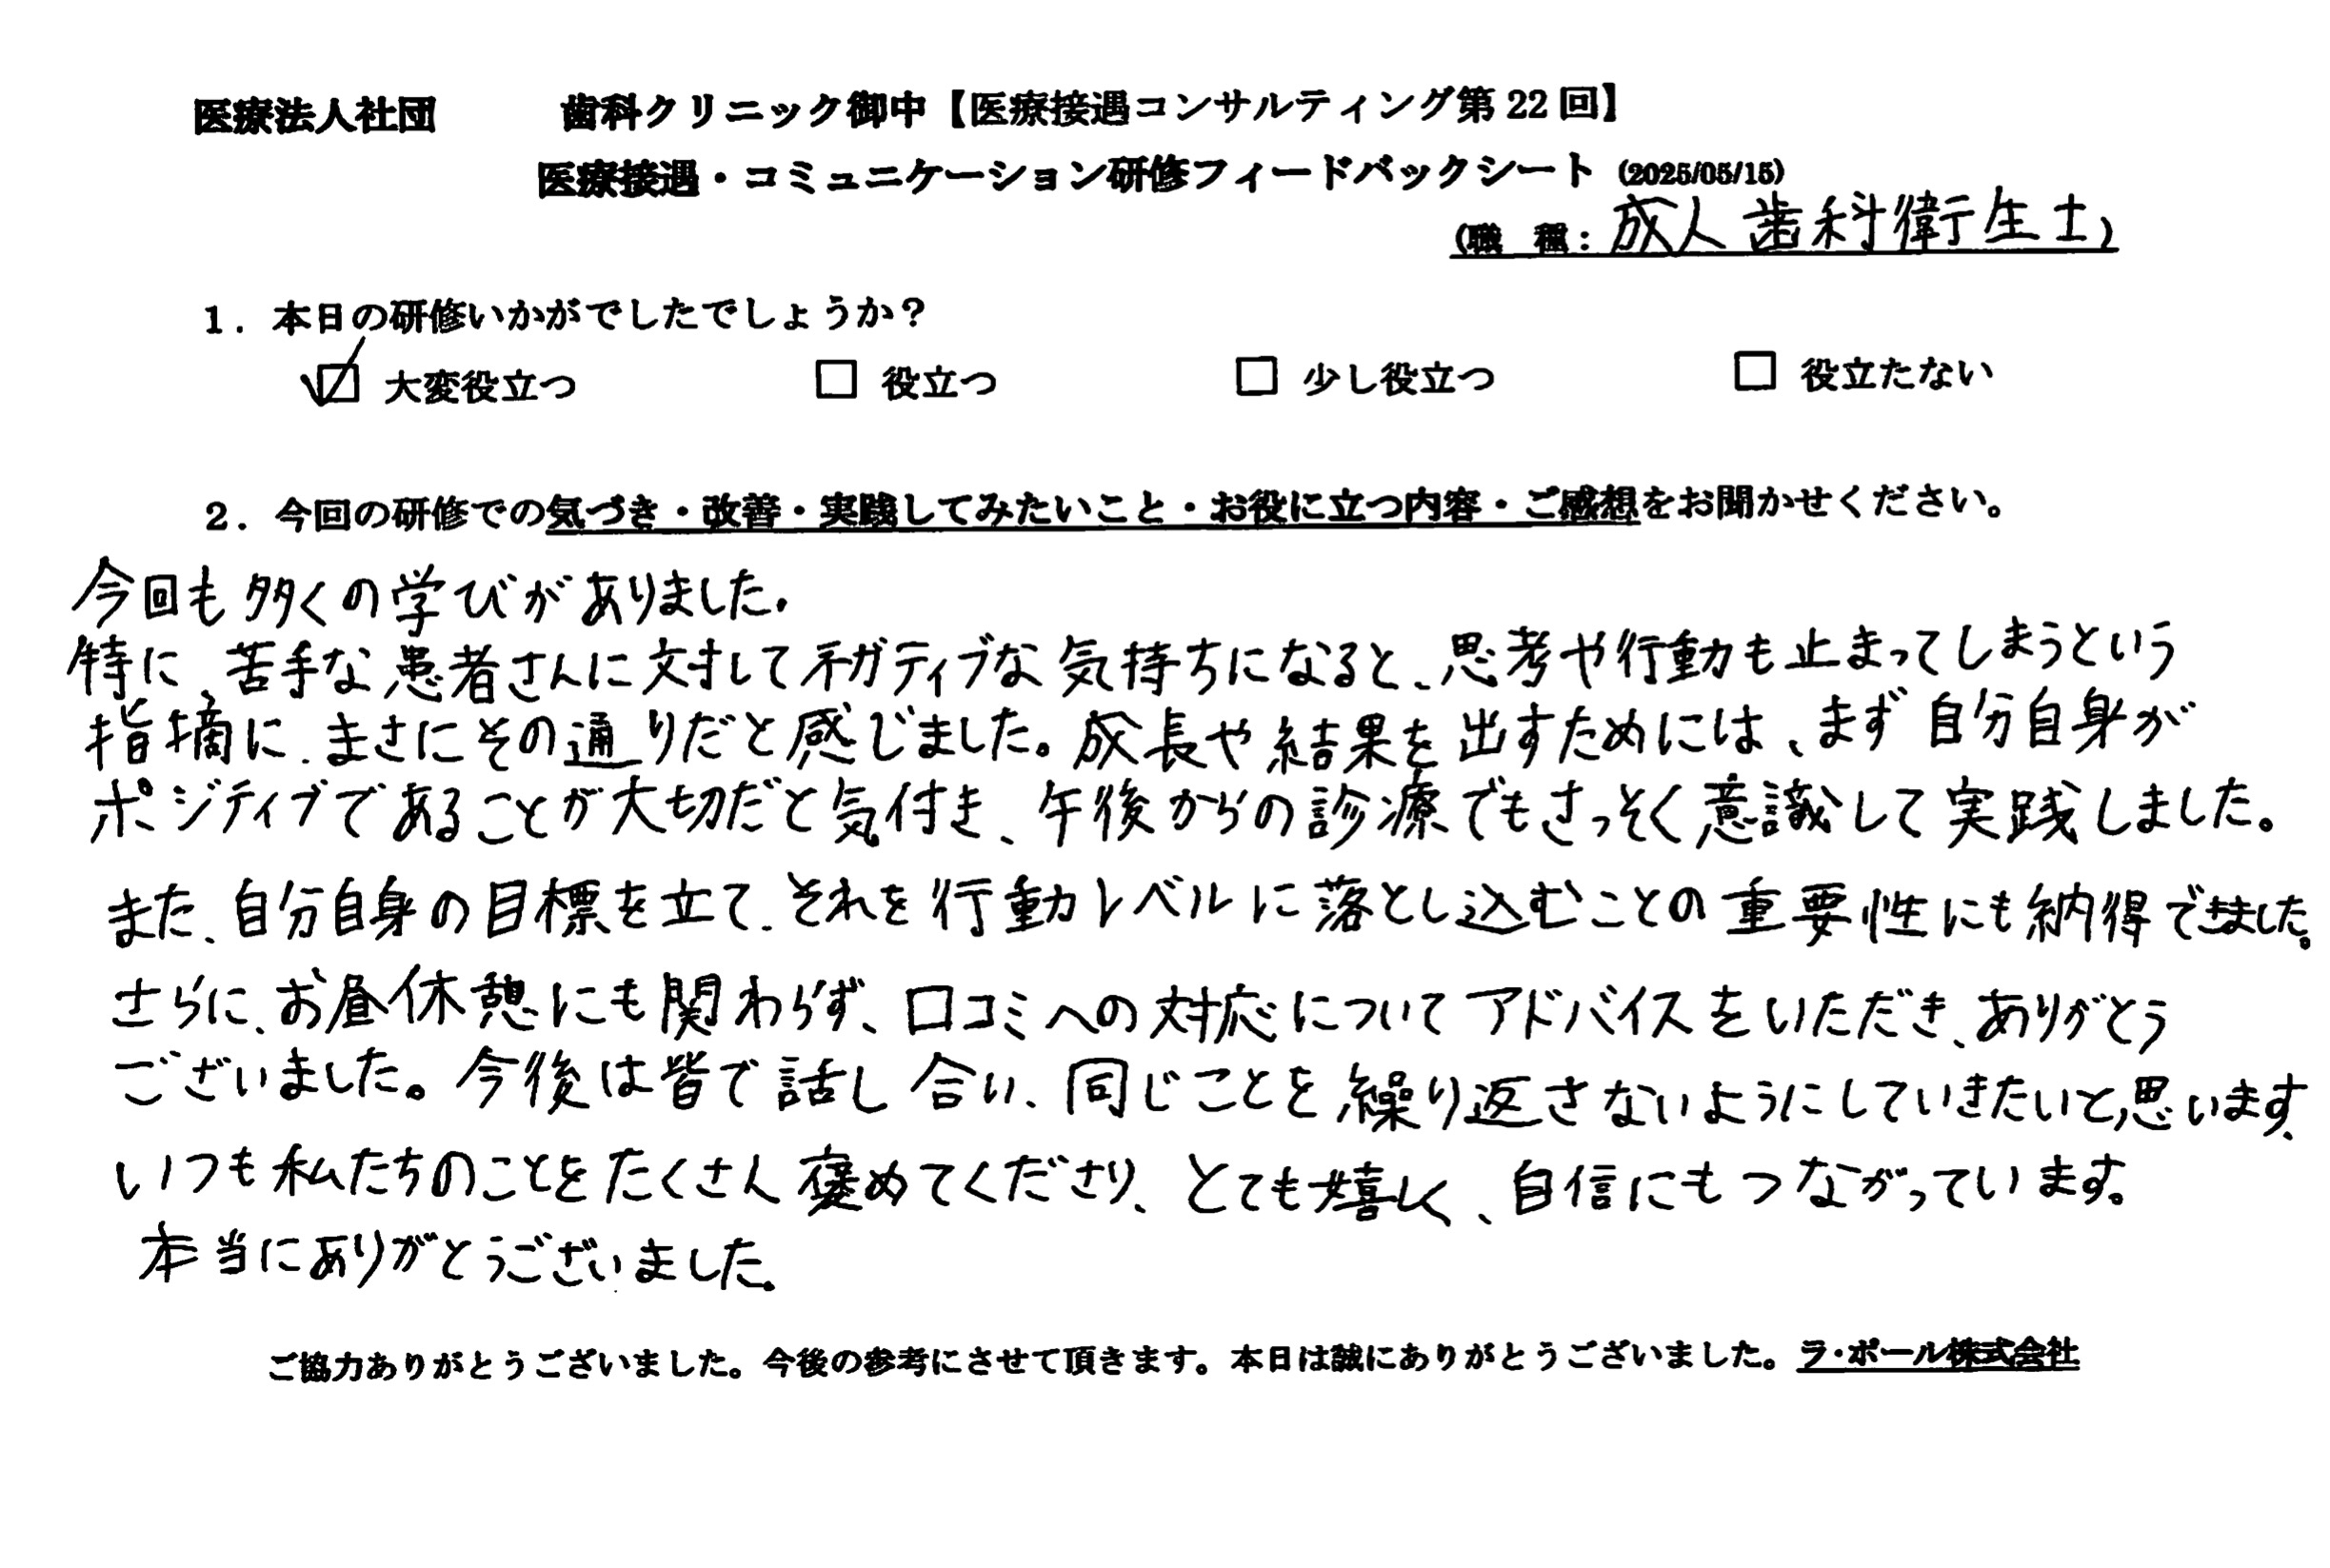 医療法人社団 歯科クリニック御中【医療接遇コンサルティング第22回】
医療接遇・コミュニケーション研修フィードバックシート (2025/05/15)
(職 種：成人歯科衛生士)
1. 本日の研修いかがでしたでしょうか？
☑ 大変役立つ □ 役立つ □ 少し役立つ □ 役立たない
2. 今回の研修での気づき・改善・実践してみたいこと・お役に立つ内容・ご感想をお聞かせください。
今回も多くの学びがありました。
特に、苦手な患者さんに対してネガティブな気持ちになると、思考や行動も止まってしまうという
指摘に、まさにその通りだと感じました。成長や結果を出すためには、まず自分自身が
ポジティブであることが大切だと気付き、午後からの診療でもさっそく意識して実践しました。
また、自分自身の目標を立て、それを行動レベルに落とし込むことの重要性にも納得できました。
さらに、お昼休憩にも関わらず、口コミへの対応についてアドバイスをいただき、ありがとう
ございました。今後は皆で話し合い、同じことを繰り返さないようにしていきたいと思います。
いつも私たちのことをたくさん褒めてくださり、とても嬉しく、自信にもつながっています。
本当にありがとうございました。
ご協力ありがとうございました。今後の参考にさせて頂きます。本日は誠にありがとうございました。ラ・ポール株式会社